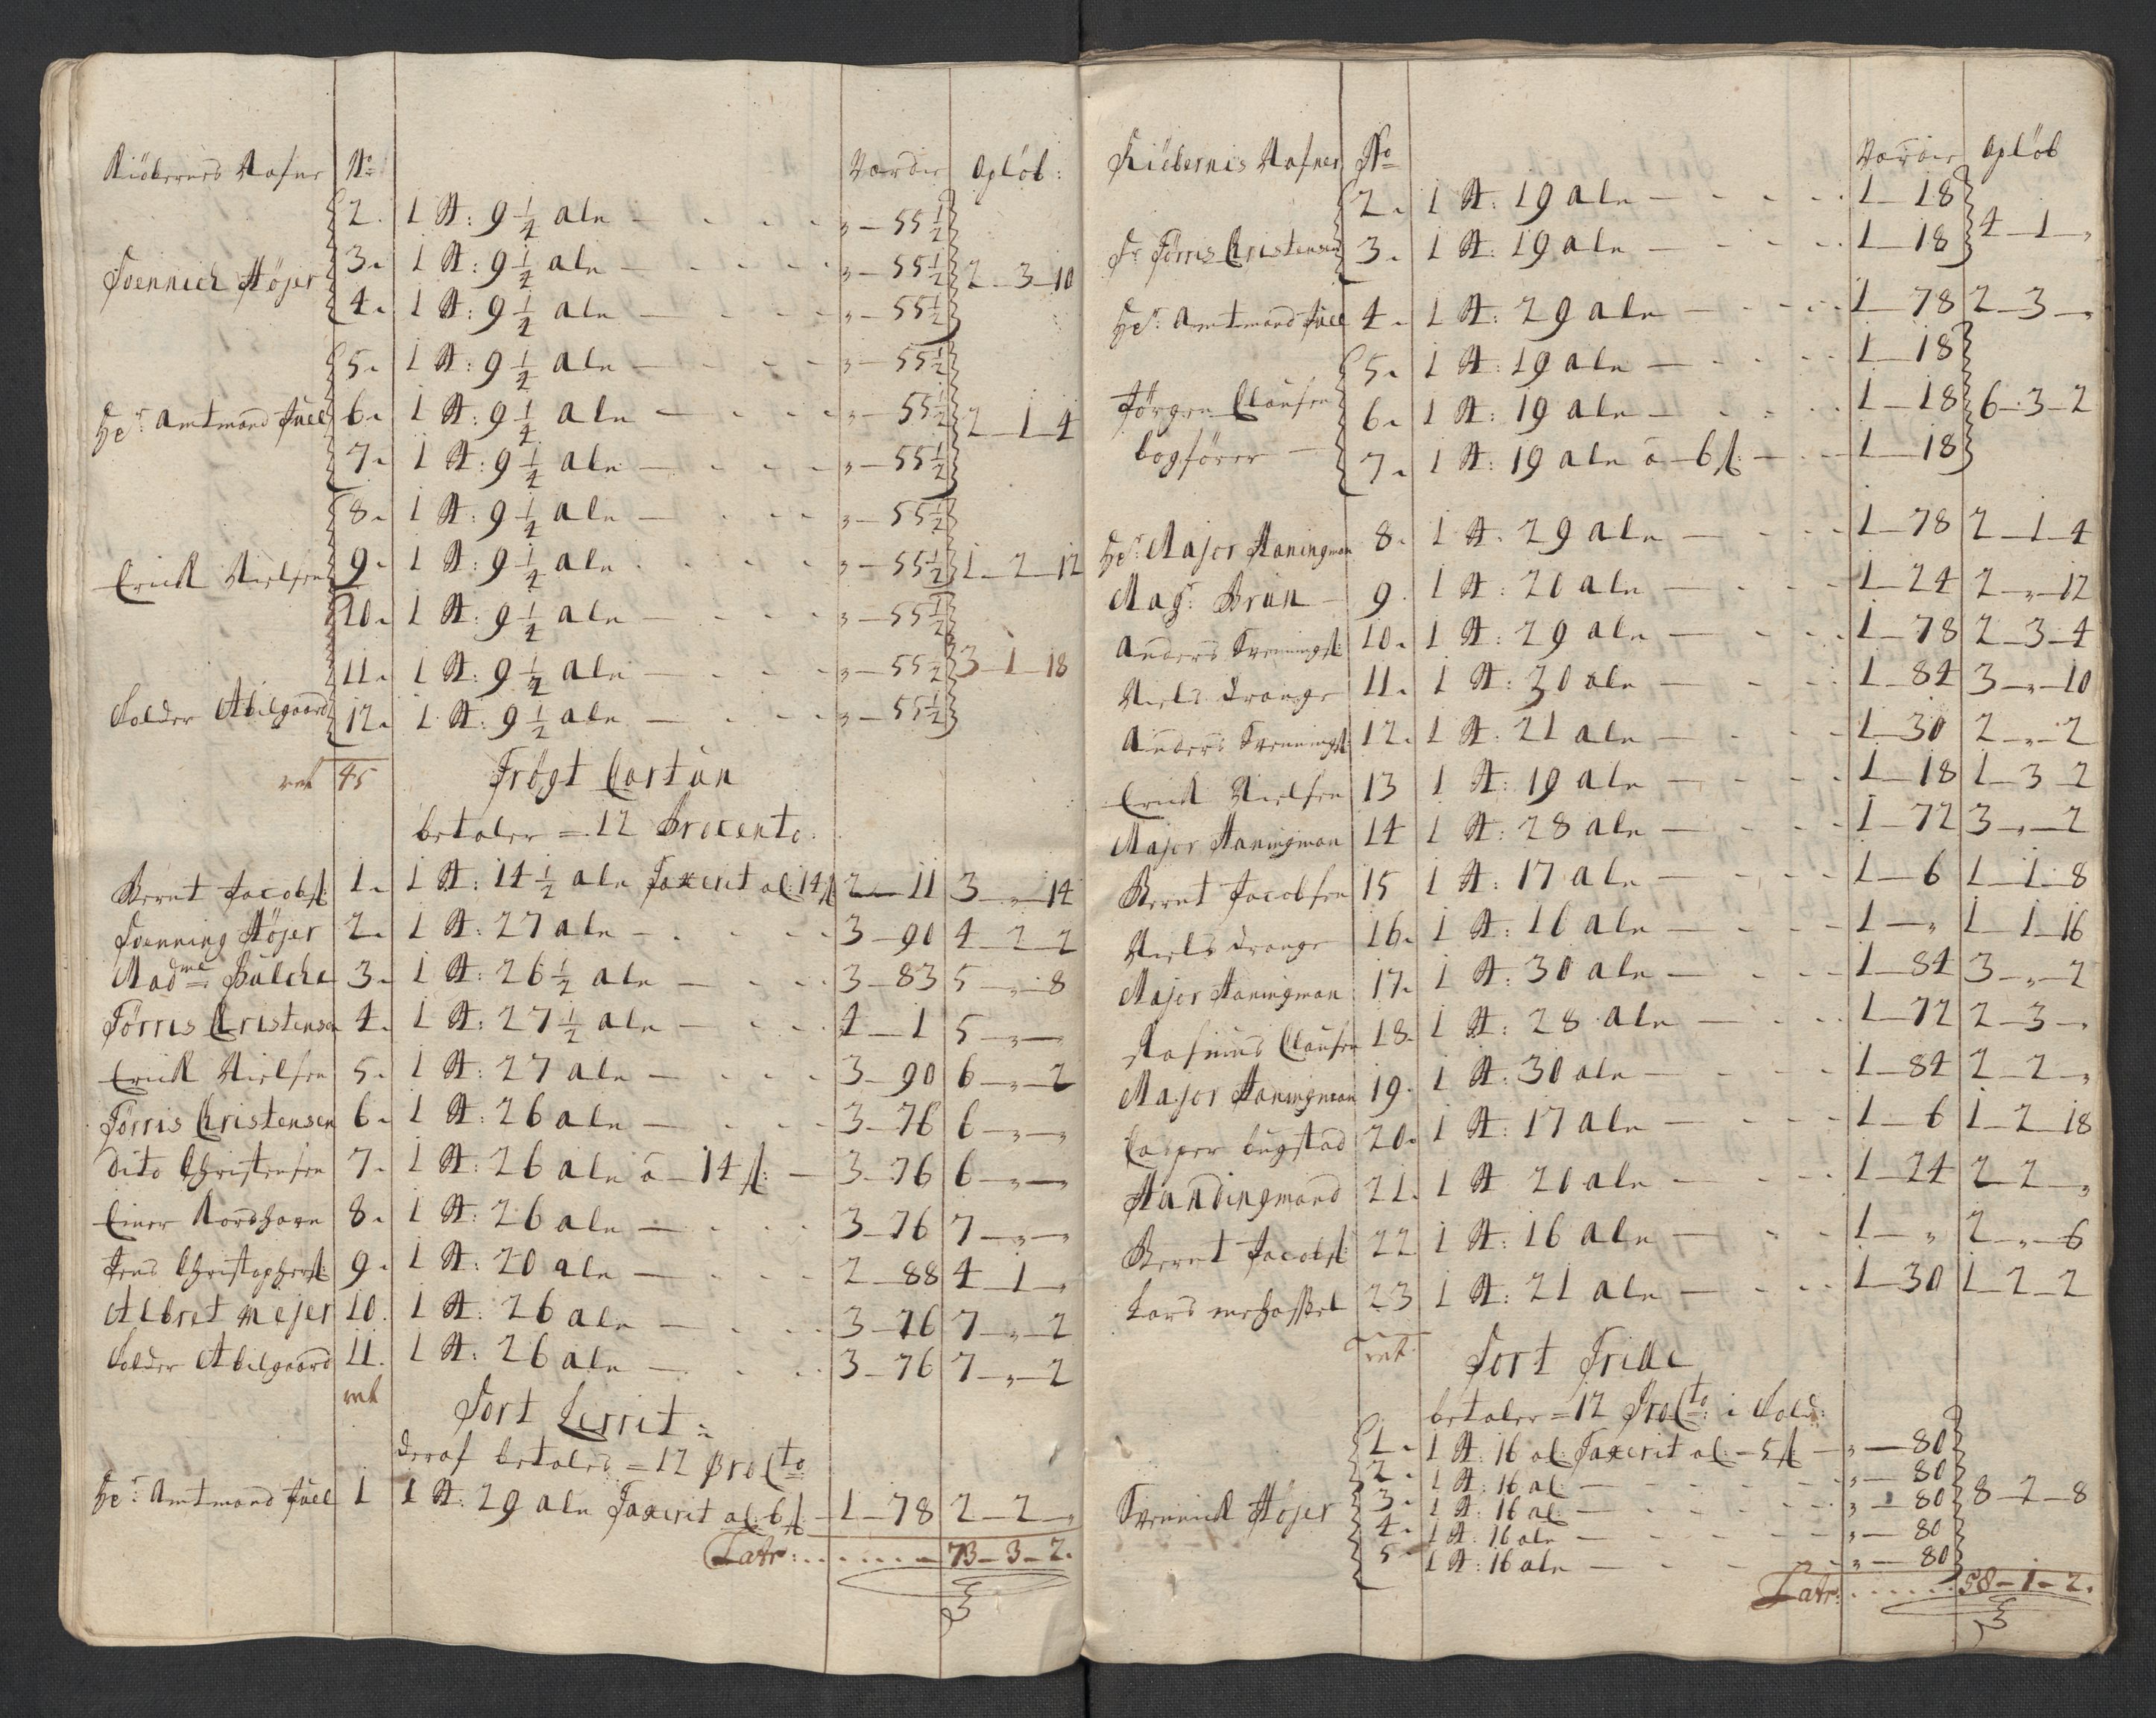 Kiöberens Nafne No Vordie Opløb:
2. 1 St: 9 1/4 aln — „—55 1/2
Svennich Höjer 3. 1 St: 9 1/4 aln — „—55 1/2 2—3—10
4. 1 St: 9 1/4 aln — „—55 1/2
5. 1 St: 9 1/4 aln — „—55 1/2
Hr: Amtmand Juel 6. 1 St: 9 1/4 aln — „—55 1/2 2—1—4
7. 1 St: 9 1/4 aln — „—55 1/2
8. 1 St: 9 1/4 aln — „—55 1/2
Erich Nielsen 9. 1 St: 9 1/4 aln — „—55 1/2 1—2—12
10. 1 St: 9 1/4 aln — „—55 1/2
11. 1 St: 9 1/4 aln — „—55 1/2 3—1—18
Colder Abilgaard 12. 1 St: 9 1/2 aln — „—55 1/2
45 Trögt Cartun
betaler = 12 Procento.
Bernt Jacobs: 1. 1 St: 14 1/2 aln Taxerit al: 14 s 2—11 3—„—14
Svenning Höjer 2. 1 St: 27 aln — 3—90 4—2—2
Madme: Bülche 3. 1 St: 26 1/2 aln — 3—83 5—„—8
Törris Christensen 4. 1 St: 27 1/2 aln — 4—1 5—„—
Erich Nielsen 5. 1 St: 27 aln — 3—90 6—„—2
Törris Christensen 6. 1 St: 26 aln — 3—76 6—„—„
Dito Christensen 7. 1 St: 26 aln a 14 s: — 3—76 6—„—
Einer Nordhavn 8. 1 St: 26 aln — 3—76 7—„—„
Jens Christophers: 9. 1 St: 20 aln — 2—88 4—1—„
Albret Mejer 10. 1 St: 26 aln — 3—76 7—„—2
Colder Abilgaard 11. 1 St: 26 aln — 3—76 7—„—2
Sort Lerrit:
deraf betales = 12 Procto
Hr: Amtmand Juel 1 1 St: 29 aln Taxerit al: 6 s: 1—78 2—2—„
Latr: 73—3—2.
Kiöbernis Nafner No Vordie Opløb
2. 1 St: 19 aln — 1—18
Sr Törris Christensen 3. 1 St: 19 aln — 1—18 4—1—„
Hr: Amtmand Juel 4. 1 St: 29 aln — 1—78 2—3—„
5. 1 St: 19 aln — 1—18
Jörgen Clausen 6. 1 St: 19 aln — 1—18 6—3—2
bogfører — 7. 1 St: 19 aln a 6 s: — 1—18
Hr: Major Haningman 8. 1 St: 29 aln — 1—78 2—1—4
Magr: Brun — 9. 1 St: 20 aln — 1—24 2—„—12
Anders Svennings: 10. 1 St: 29 aln — 1—78 2—3—4
Niels Drange 11. 1 St: 30 aln — 1—84 3—„—10
Anders Svennings: 12. 1 St: 21 aln — 1—30 2—„—2
Erich Nielsen 13 1 St: 19 aln — 1—18 1—3—2
Major Haningman 14 1 St: 28 aln — 1—72 3—„—2
Bernt Jacobsen 15 1 St: 17 aln — 1—6 1—1—8
Niels Drange 16. 1 St: 16 aln — 1—„ 1—1—16
Major Haningman 17. 1 St: 30 aln — 1—84 3—„—2
Rasmus Clausen 18. 1 St: 28 aln — 1—72 2—3—„
Major Haningman 19. 1 St: 30 aln — 1—84 2—2—„
Casper bugstad 20. 1 St: 17 aln — 1—6 1—2—18
Handingmand 21. 1 St: 20 aln — 1—24 2—2—„
Bernt Jacobs: 22 1 St: 16 aln — 1—„ 2—„—6
Lars 23 1 St: 21 aln — 1—30 1—2—2
Sort Frille
betaler = 12 Procto: i Told:
1. 1 St: 16 al: Taxerit al: 5 s: „—80
2. 1 St: 16 al: — „—80
Svennich Höjer 3. 1 St: 16 al: — „—80 8—2—8
4. 1 St: 16 aln — „—80
5 1 St: 16 aln — „—80
Latr: 58—1—2.